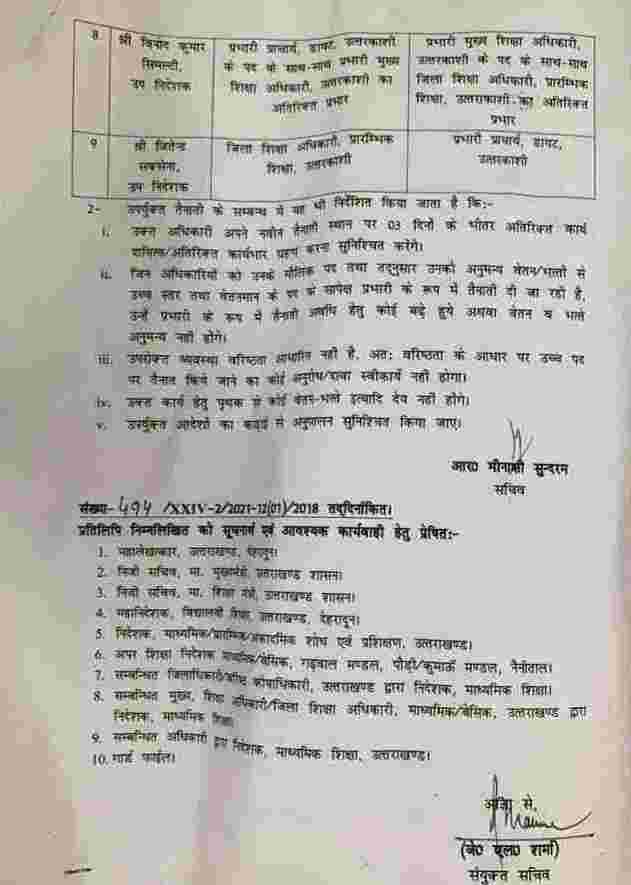 8 श्री विनोद कुमार सिमल्टी, उप निदेशक
प्रभारी प्राचार्य, डायट, उत्तरकाशी के पद के साथ-साथ प्रभारी मुख्य शिक्षा अधिकारी, उत्तरकाशी का अतिरिक्त प्रभार
प्रभारी मुख्य शिक्षा अधिकारी, उत्तरकाशी के पद के साथ-साथ जिला शिक्षा अधिकारी, प्रारम्भिक शिक्षा, उत्तरकाशी का अतिरिक्त प्रभार
9 श्री जितेन्द्र सक्सेना, उप निदेशक
जिला शिक्षा अधिकारी, प्रारम्भिक शिक्षा, उत्तरकाशी
प्रभारी प्राचार्य, डायट, उत्तरकाशी
2- उपर्युक्त तैनाती के सम्बन्ध में यह भी निर्देशित किया जाता है कि:-
i. उक्त अधिकारी अपने नवीन तैनाती स्थान पर 03 दिनों के भीतर अतिरिक्त कार्य
दायित्व/अतिरिक्त कार्यभार ग्रहण करना सुनिश्चित करेंगे।
ii. जिन अधिकारियों को उनके मौलिक पद तथा तद्नुसार उनको अनुमन्य वेतन/भत्तों से
उच्च स्तर तथा वेतनमान के पद के सापेक्ष प्रभारी के रूप में तैनाती दी जा रही है,
उन्हें प्रभारी के रूप में तैनाती अवधि हेतु कोई बढ़े हुये अथवा वेतन व भत्ते
अनुमन्य नहीं होंगे।
iii. उपरोक्त व्यवस्था वरिष्ठता आधारित नहीं है, अत: वरिष्ठता के आधार पर उच्च पद
पर तैनात किये जाने का कोई अनुरोध/दावा स्वीकार्य नहीं होगा।
iv. उक्त कार्य हेतु पृथक से कोई वेतन-भत्ते इत्यादि देय नहीं होंगे।
v. उपर्युक्त आदेशों का कड़ाई से अनुपालन सुनिश्चित किया जाए।
आर0 मीनाक्षी सुन्दरम
सचिव
संख्या- 494 /XXIV-2/2021-12(01)/2018 तद्दिनांकित।
प्रतिलिपि निम्नलिखित को सूचनार्थ एवं आवश्यक कार्यवाही हेतु प्रेषित:-
1. महालेखाकार, उत्तराखण्ड, देहरादून।
2. निजी सचिव, मा. मुख्यमंत्री, उत्तराखण्ड शासन।
3. निजी सचिव, मा. शिक्षा मंत्री, उत्तराखण्ड शासन।
4. महानिदेशक, विद्यालयी शिक्षा, उत्तराखण्ड, देहरादून।
5. निदेशक, माध्यमिक/प्रारम्भिक/अकादमिक शोध एवं प्रशिक्षण, उत्तराखण्ड।
6. अपर शिक्षा निदेशक माध्यमिक/बेसिक, गढ़वाल मण्डल, पौड़ी/कुमाऊँ मण्डल, नैनीताल।
7. सम्बन्धित जिलाधिकारी/वरिष्ठ कोषाधिकारी, उत्तराखण्ड द्वारा निदेशक, माध्यमिक शिक्षा।
8. सम्बन्धित मुख्य शिक्षा अधिकारी/जिला शिक्षा अधिकारी, माध्यमिक/बेसिक, उत्तराखण्ड द्वारा
निदेशक, माध्यमिक शिक्षा
9. सम्बन्धित अधिकारी द्वारा निदेशक, माध्यमिक शिक्षा, उत्तराखण्ड।
10. गार्ड फाईल।
आज्ञा से,
(जे0 एल0 शर्मा)
संयुक्त सचिव